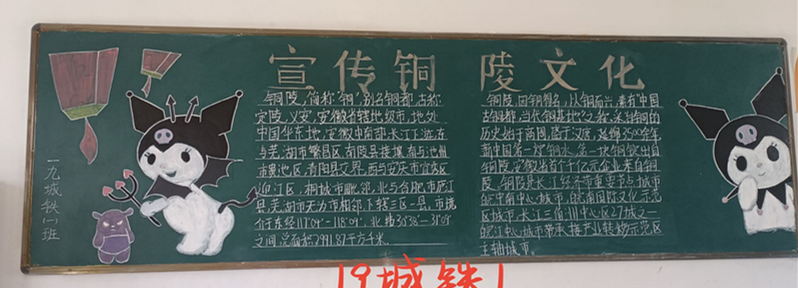 宣传铜 陵文化
铜陵,简称"铜",别名铜都,古称
定陵、义安,安徽省辖地级市,地处
中国华东地,安徽中南部,长江下游,东
与芜湖市繁昌区、南陵县接壤,南与池州
市贵池区、青阳县交界,西与安庆市宜秀区
迎江区、桐城市毗邻,北与合肥市庐江
县、芜湖市无为市相邻,下辖三区一县,市境
位于东经
之间,总面积2991.87平方千米。
铜陵,因铜得名,以铜而兴,素有中国
古铜都,当代铜基地之称,采冶铜的
历史始于商周,盛于汉唐,延绵3500余年
新中国第一炉铜水、第一块铜锭出自
铜陵,安徽省首个千亿元企业来自铜
陵,铜陵是长江经济带重要节点城市
皖中南中心城市,皖南国际文化示范
区城市,长江三角洲中心区27城之一
皖江城市带承接产业转移示范区
主轴城市。
一九城铁(一)班
19城铁1